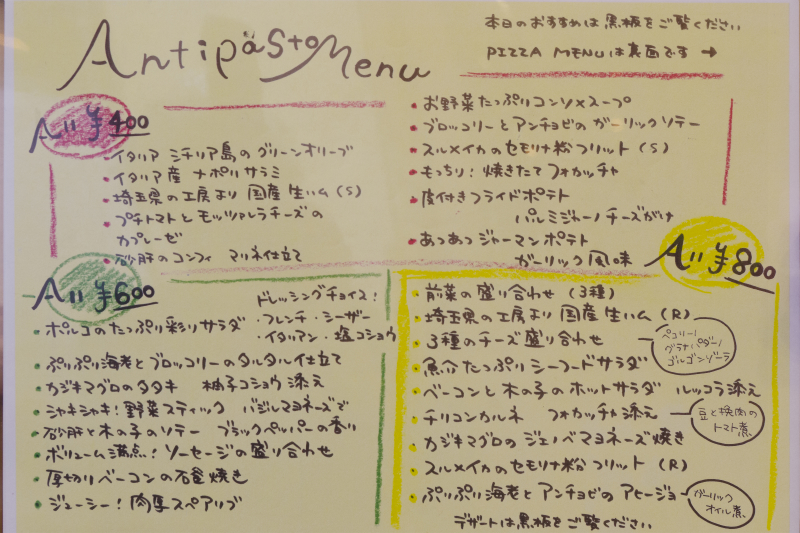 Antipasto Menu
本日のおすすめは黒板をご覧ください
PIZZA MENUは裏面です →
All ¥400
・イタリア シチリア島のグリーンオリーブ
・イタリア産 ナポリサラミ
・埼玉県の工房より 国産生ハム (S)
・プチトマトとモッツァレラチーズの
カプレーゼ
・砂肝のコンフィ マリネ仕立て
・お野菜たっぷりコンソメスープ
・ブロッコリーとアンチョビのガーリックソテー
・スルメイカのセモリナ粉フリット (S)
・もっちり!焼きたてフォカッチャ
・皮付きフライドポテト
パルミジャーノチーズがけ
・あつあつジャーマンポテト
ガーリック風味
All ¥600
・ポルコのたっぷり彩りサラダ
ドレッシングチョイス!
・フレンチ・シーザー
・イタリアン・塩コショウ
・ぷりぷり海老とブロッコリーのタルタル仕立て
・カジキマグロのタタキ 柚子コショウ添え
・シャキシャキ!野菜スティック バジルマヨネーズで
・砂肝と木の子のソテー ブラックペッパーの香り
・ボリューム満点!ソーセージの盛り合わせ
・厚切りベーコンの石釜焼き
・ジューシー!肉厚スペアリブ
All ¥800
・前菜の盛り合わせ (3種)
・埼玉県の工房より 国産生ハム (R)
・3種のチーズ盛り合わせ
ペコリーノ
グラナパダーノ
ゴルゴンゾーラ
・魚介たっぷりシーフードサラダ
・ベーコンと木の子のホットサラダ ルッコラ添え
・チリコンカルネ フォカッチャ添え
豆と挽肉の
トマト煮
・カジキマグロのジェノベマヨネーズ焼き
・スルメイカのセモリナ粉フリット (R)
・ぷりぷり海老とアンチョビのアヒージョ
ガーリック
オイル煮
デザートは黒板をご覧ください